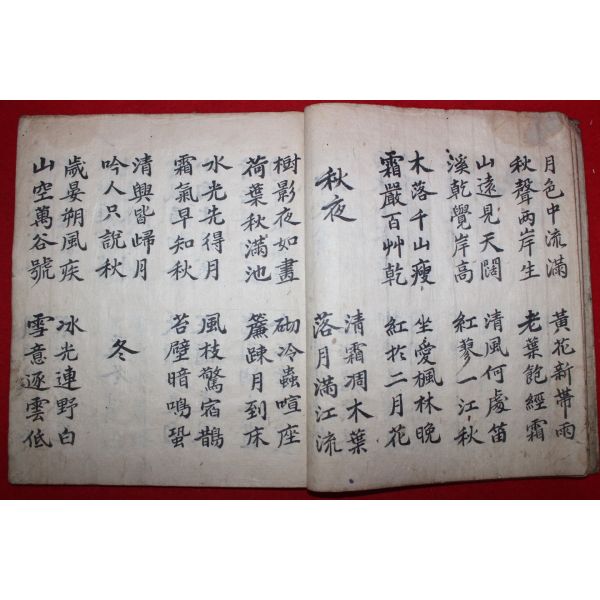 月色中流滿
秋聲兩岸生
黃花新帶雨
老葉飽經霜
山遠見天闊
溪乾覺岸高
清風何處笛
紅蓼一江秋
木落千山瘦
霜嚴百艸乾
坐愛楓林晚
紅於二月花
秋夜
清霜凋木葉
落月滿江流
樹影夜如畫
荷葉秋滿池
砌冷蟲喧座
簾踈月到床
水光先得月
霜氣早知秋
風枝驚宿鵲
苔壁暗鳴蛩
清興皆歸月
吟人只說秋
冬
歲晏朔風疾
山空萬谷號
氷光連野白
雪意逐雲低